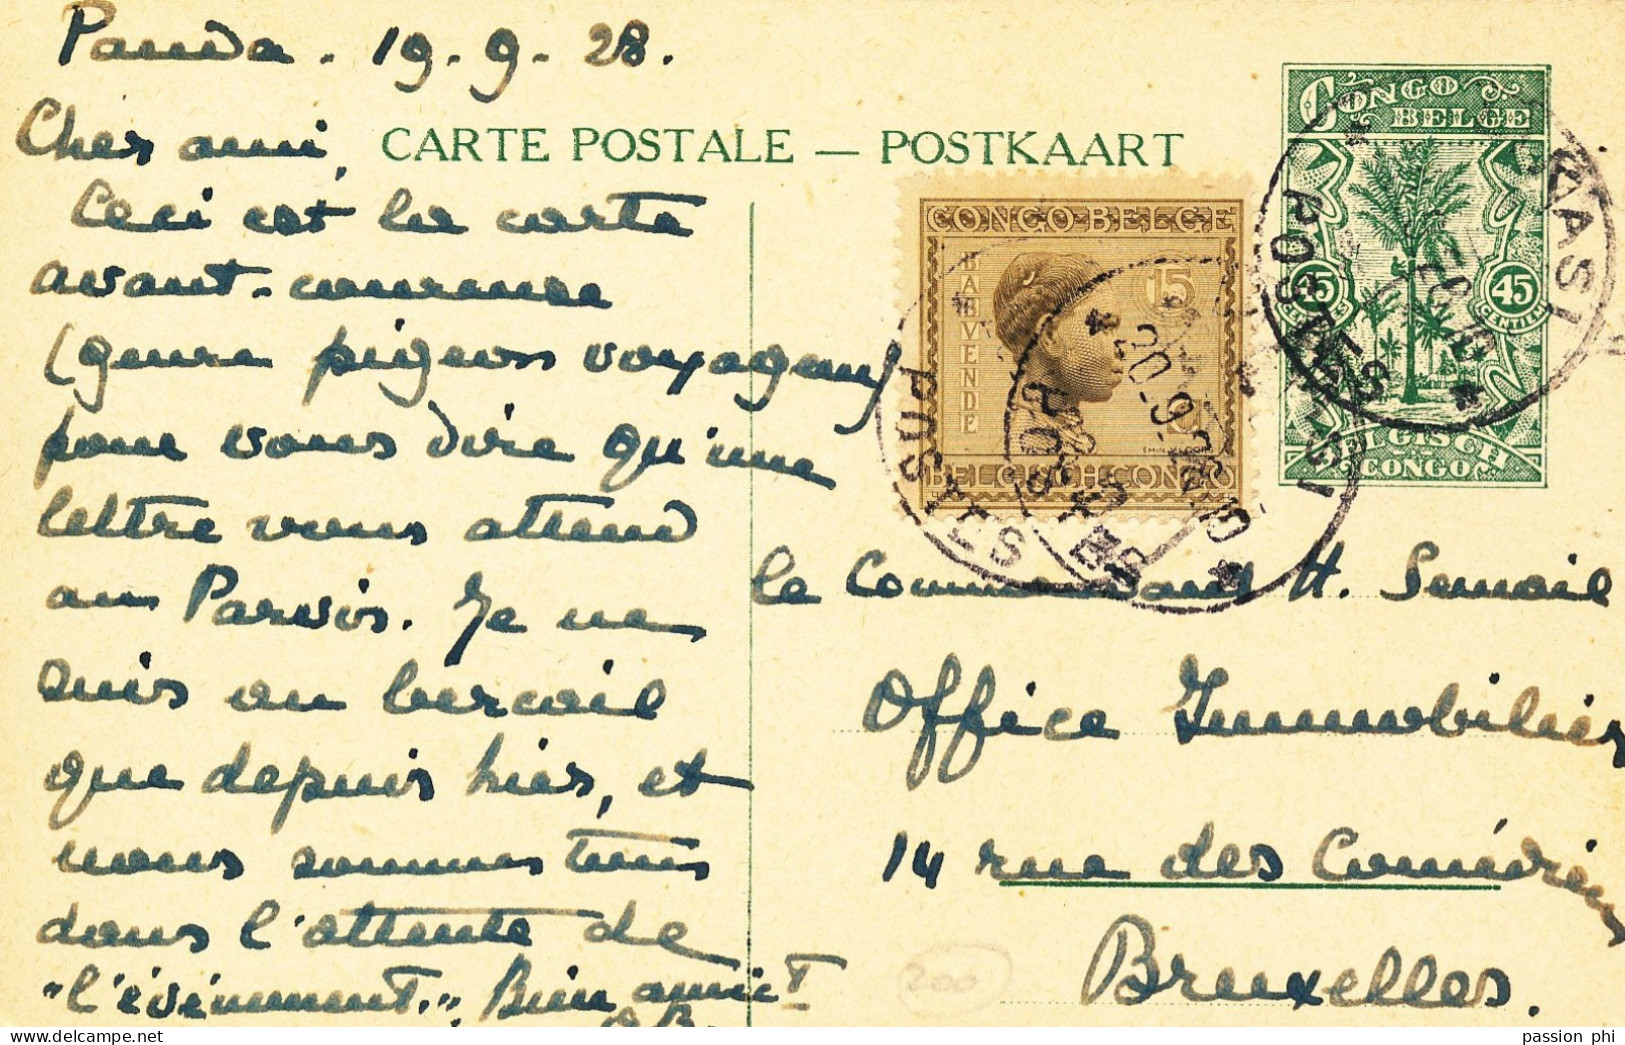 Panda. 19.9.28.
CARTE POSTALE — POSTKAART
Cher ami,
Ceci est la carte
avant-coureuse
(genre pigeons voyageurs)
pour vous dire qu'une
lettre vous attend
au Parvis. Je ne
suis au bercail
que depuis hier, et
nous sommes tous
dans l'attente de
"l'événement.", Bien amict
CONGO BELGE
45 45
CENTIEM
BELGISCH CONGO
CONGO BELGE
BABVENDE
15
BELGISCH CONGO
POSTES
POSTES
20-9
POSTES
le Commandant H. Semail
Office Immobilier
14 rue des Comédiens
Bruxelles.
200
passion phi